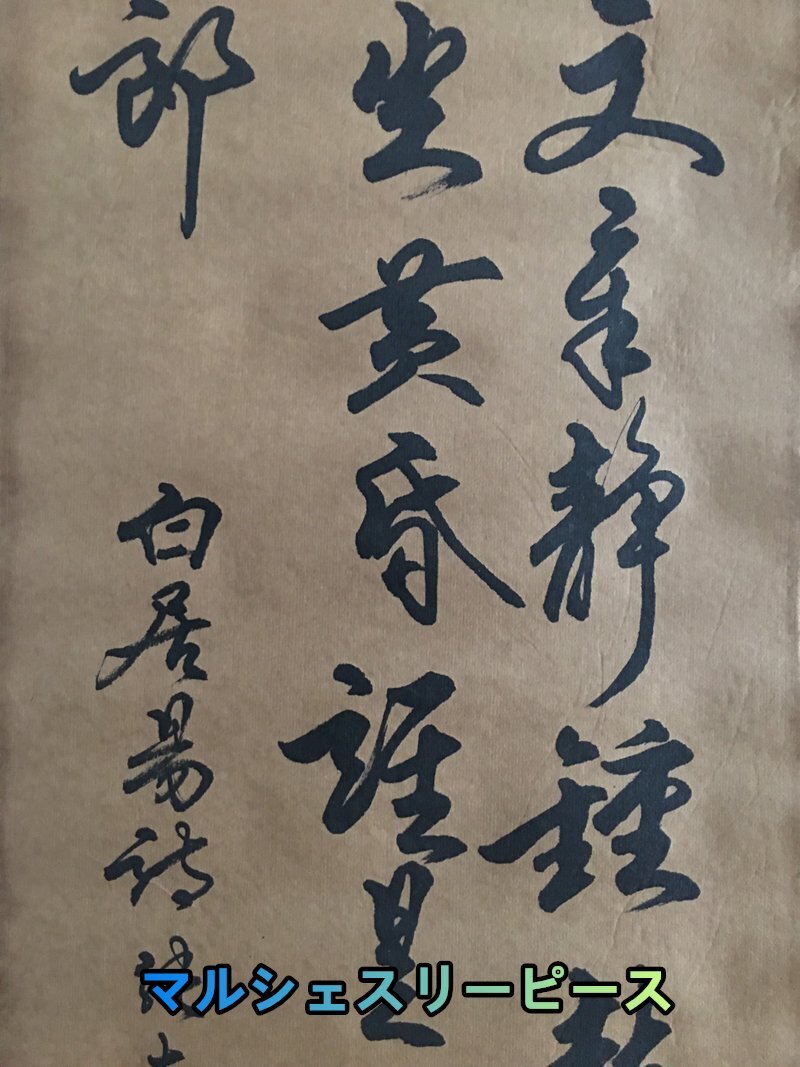 文章静鐘鼓
坐黄昏誰是
郎
白居易詩
マルシェスリーピース